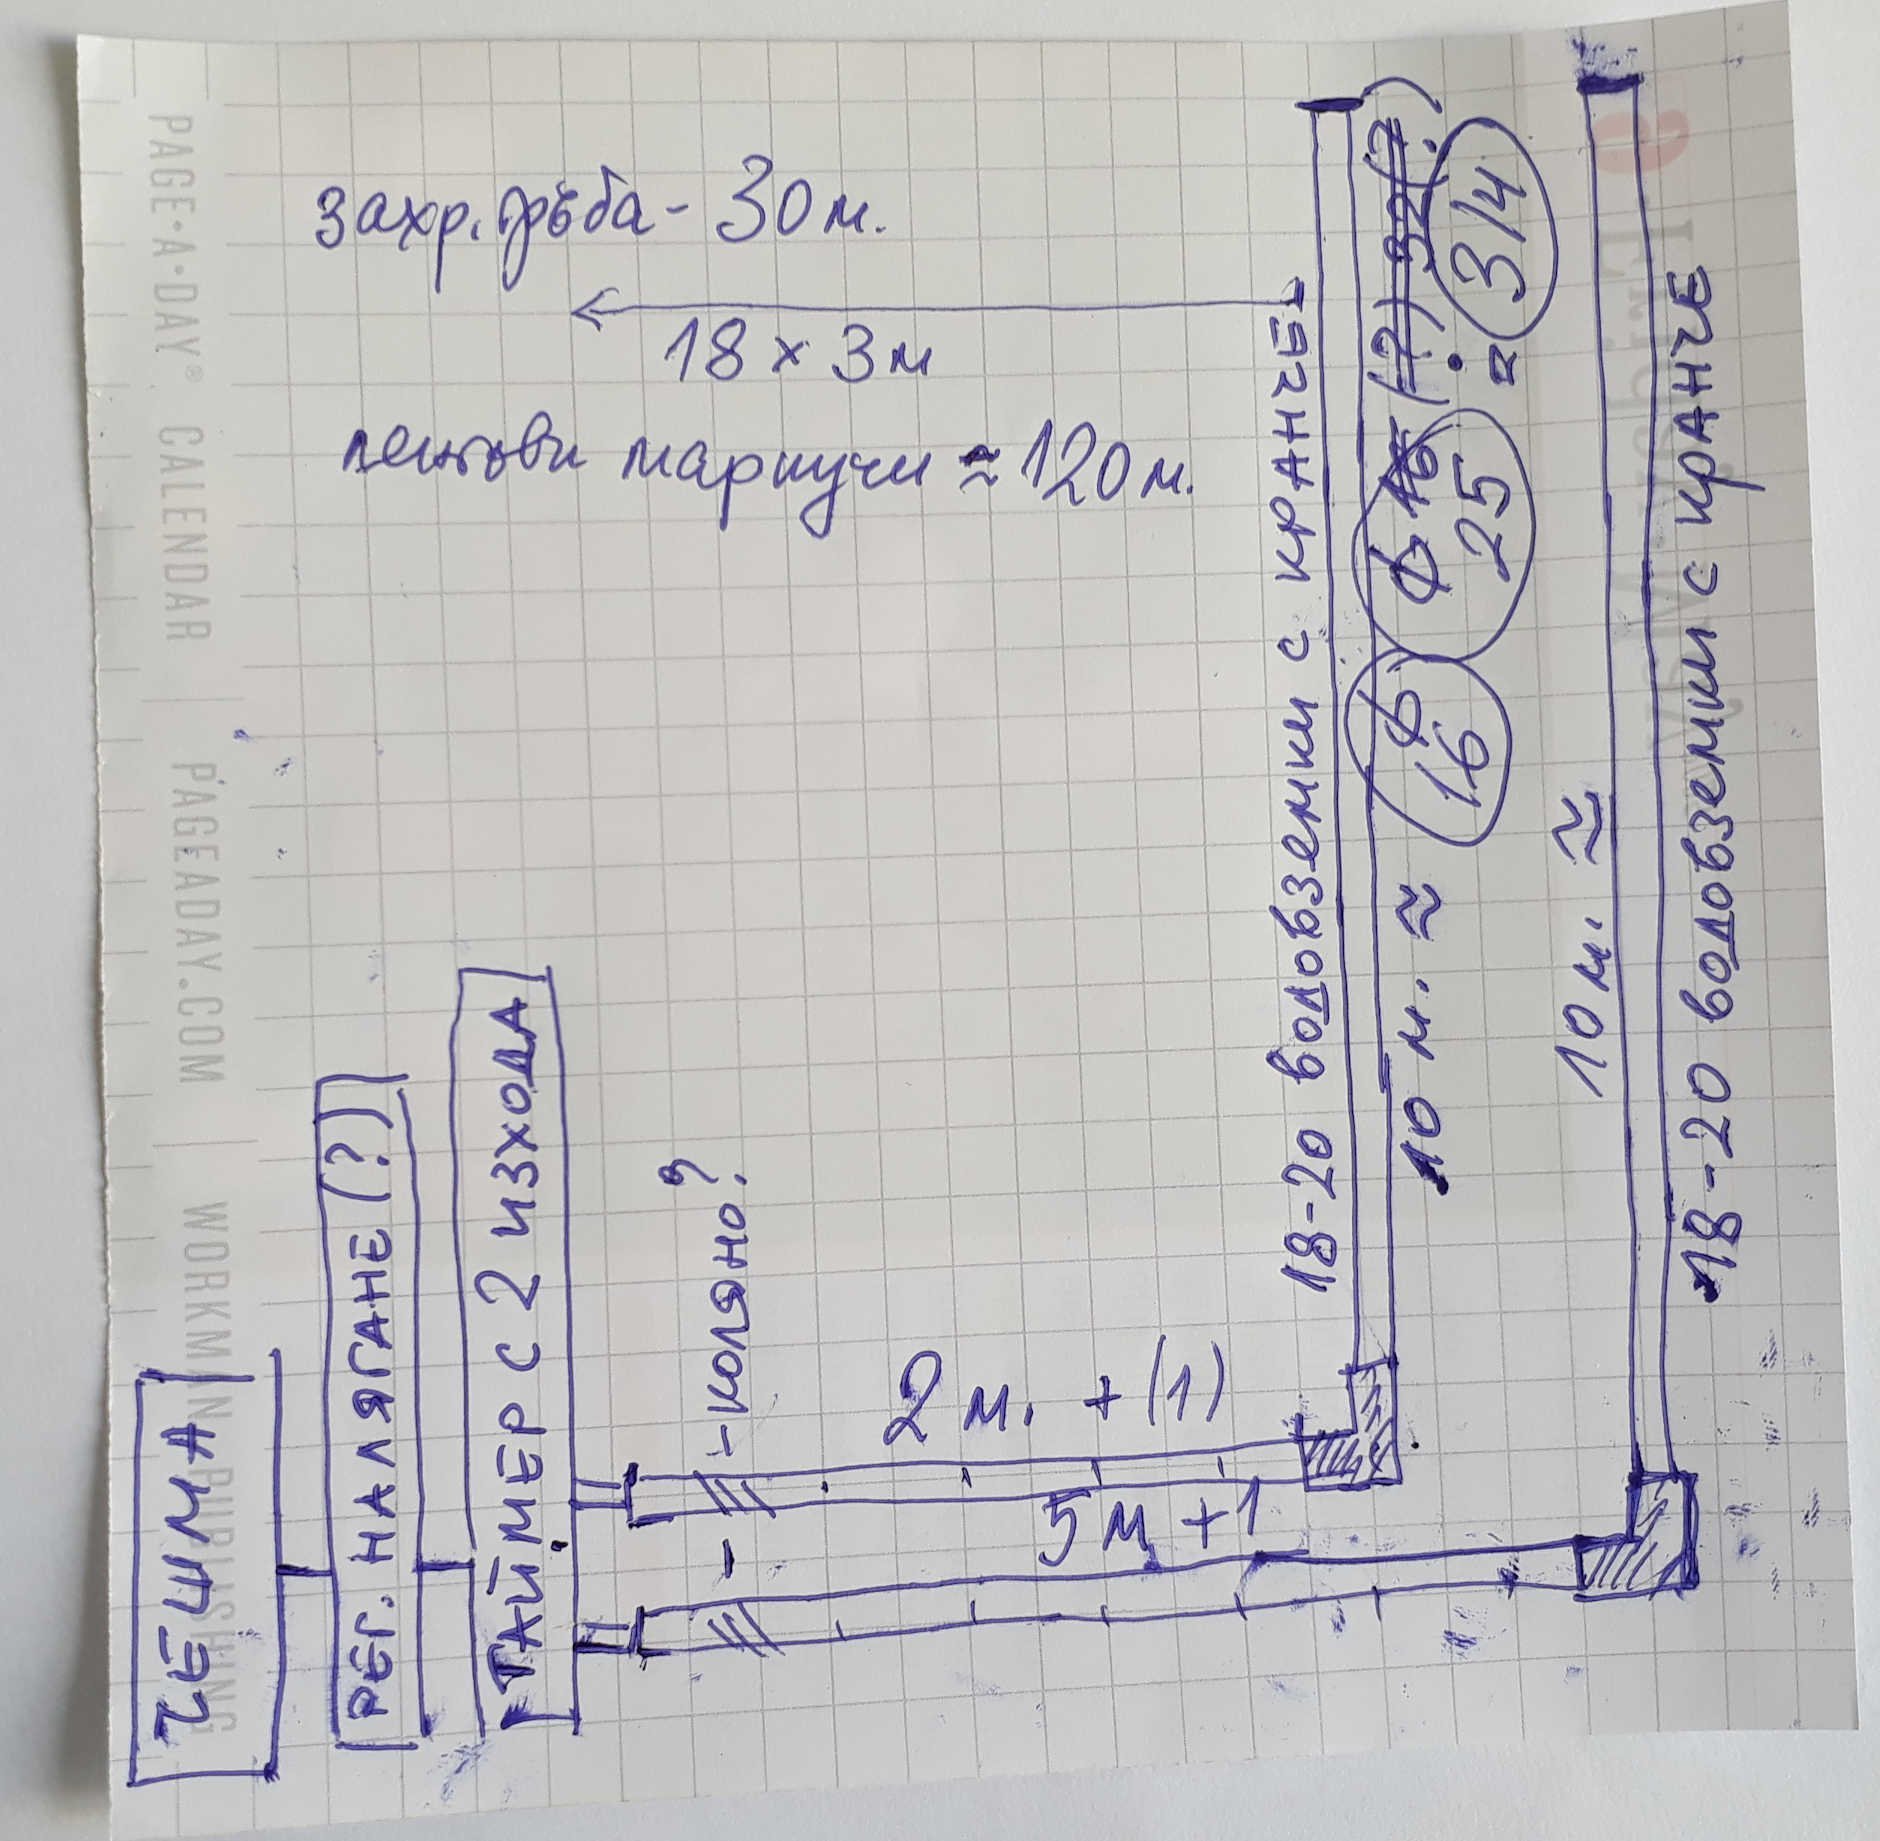 PAGE·A·DAY® CALENDAR | PAGEADAY.COM | WORKMAN PUBLISHING
ЧЕШМА
РЕГ. НАЛЯГАНЕ (?)
ТАЙМЕР С 2 ИЗХОДА
- КОЛЯНО?
2 м. + (1)
5 м + 1
захр. тръба - 30 м.
18 x 3 м
лентови маркучи ≈ 120 м.
18-20 водовземки с КРАНЧЕ
10 м. ≈
ф 16
ф 16 (?) 32(?)
25 = 3/4
10 м. ≈
18-20 водовземки с КРАНЧЕ